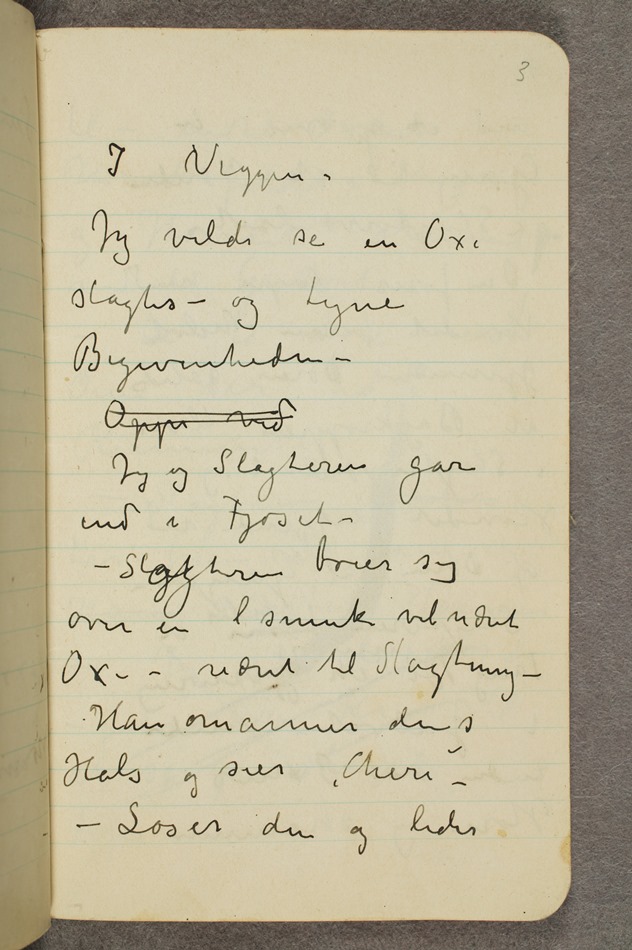 3
I Veggen.
Jeg vilde se en Oxe
slagtes – og tegne
Begivenheden –
Oppe ved
Jeg og Slagteren gaar
ind i Fjøset –
– Slagteren bøier sig
over en smuk velnæret
Oxe – næret til Slagtning –
Han omarmer dens
Hals og sier „Cheri" –
– Løser den og leder